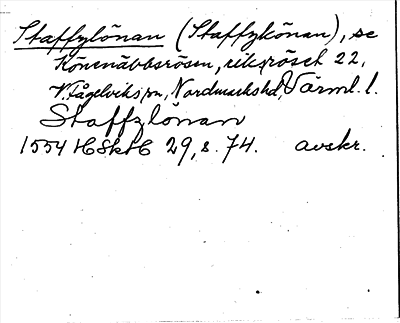 Staffzlönan (Staffzkönan), se
Könenäbbsrösen, riksröset 22,
V. Fågelviks sn, Nordmarks hd, Värml. l.
Staffzlönan
1554 HSkH 29, s. 74. avskr.